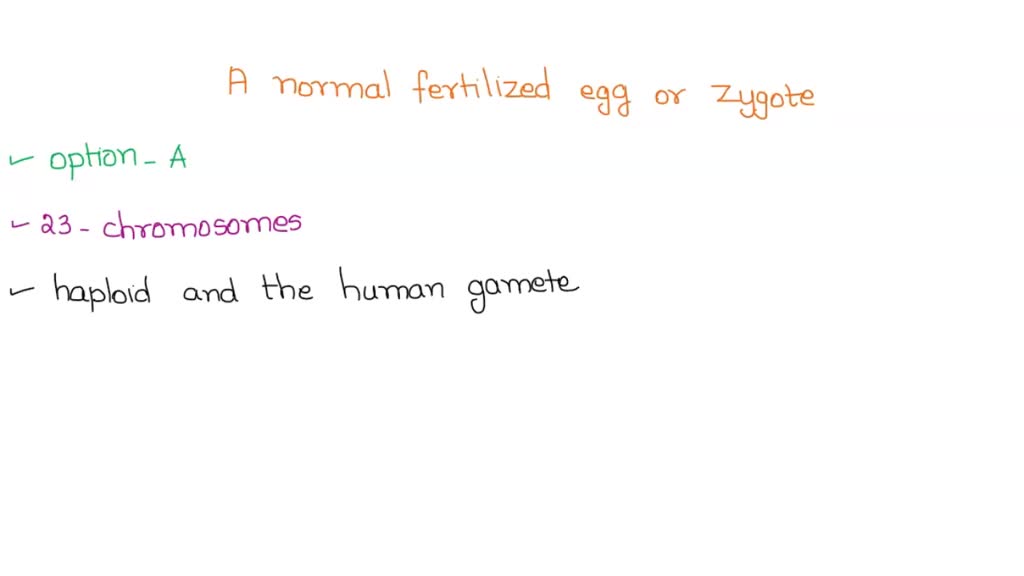 A normal fertilized egg or zygote
✓ option - A
✓ 23 - chromosomes
✓ haploid and the human gamete